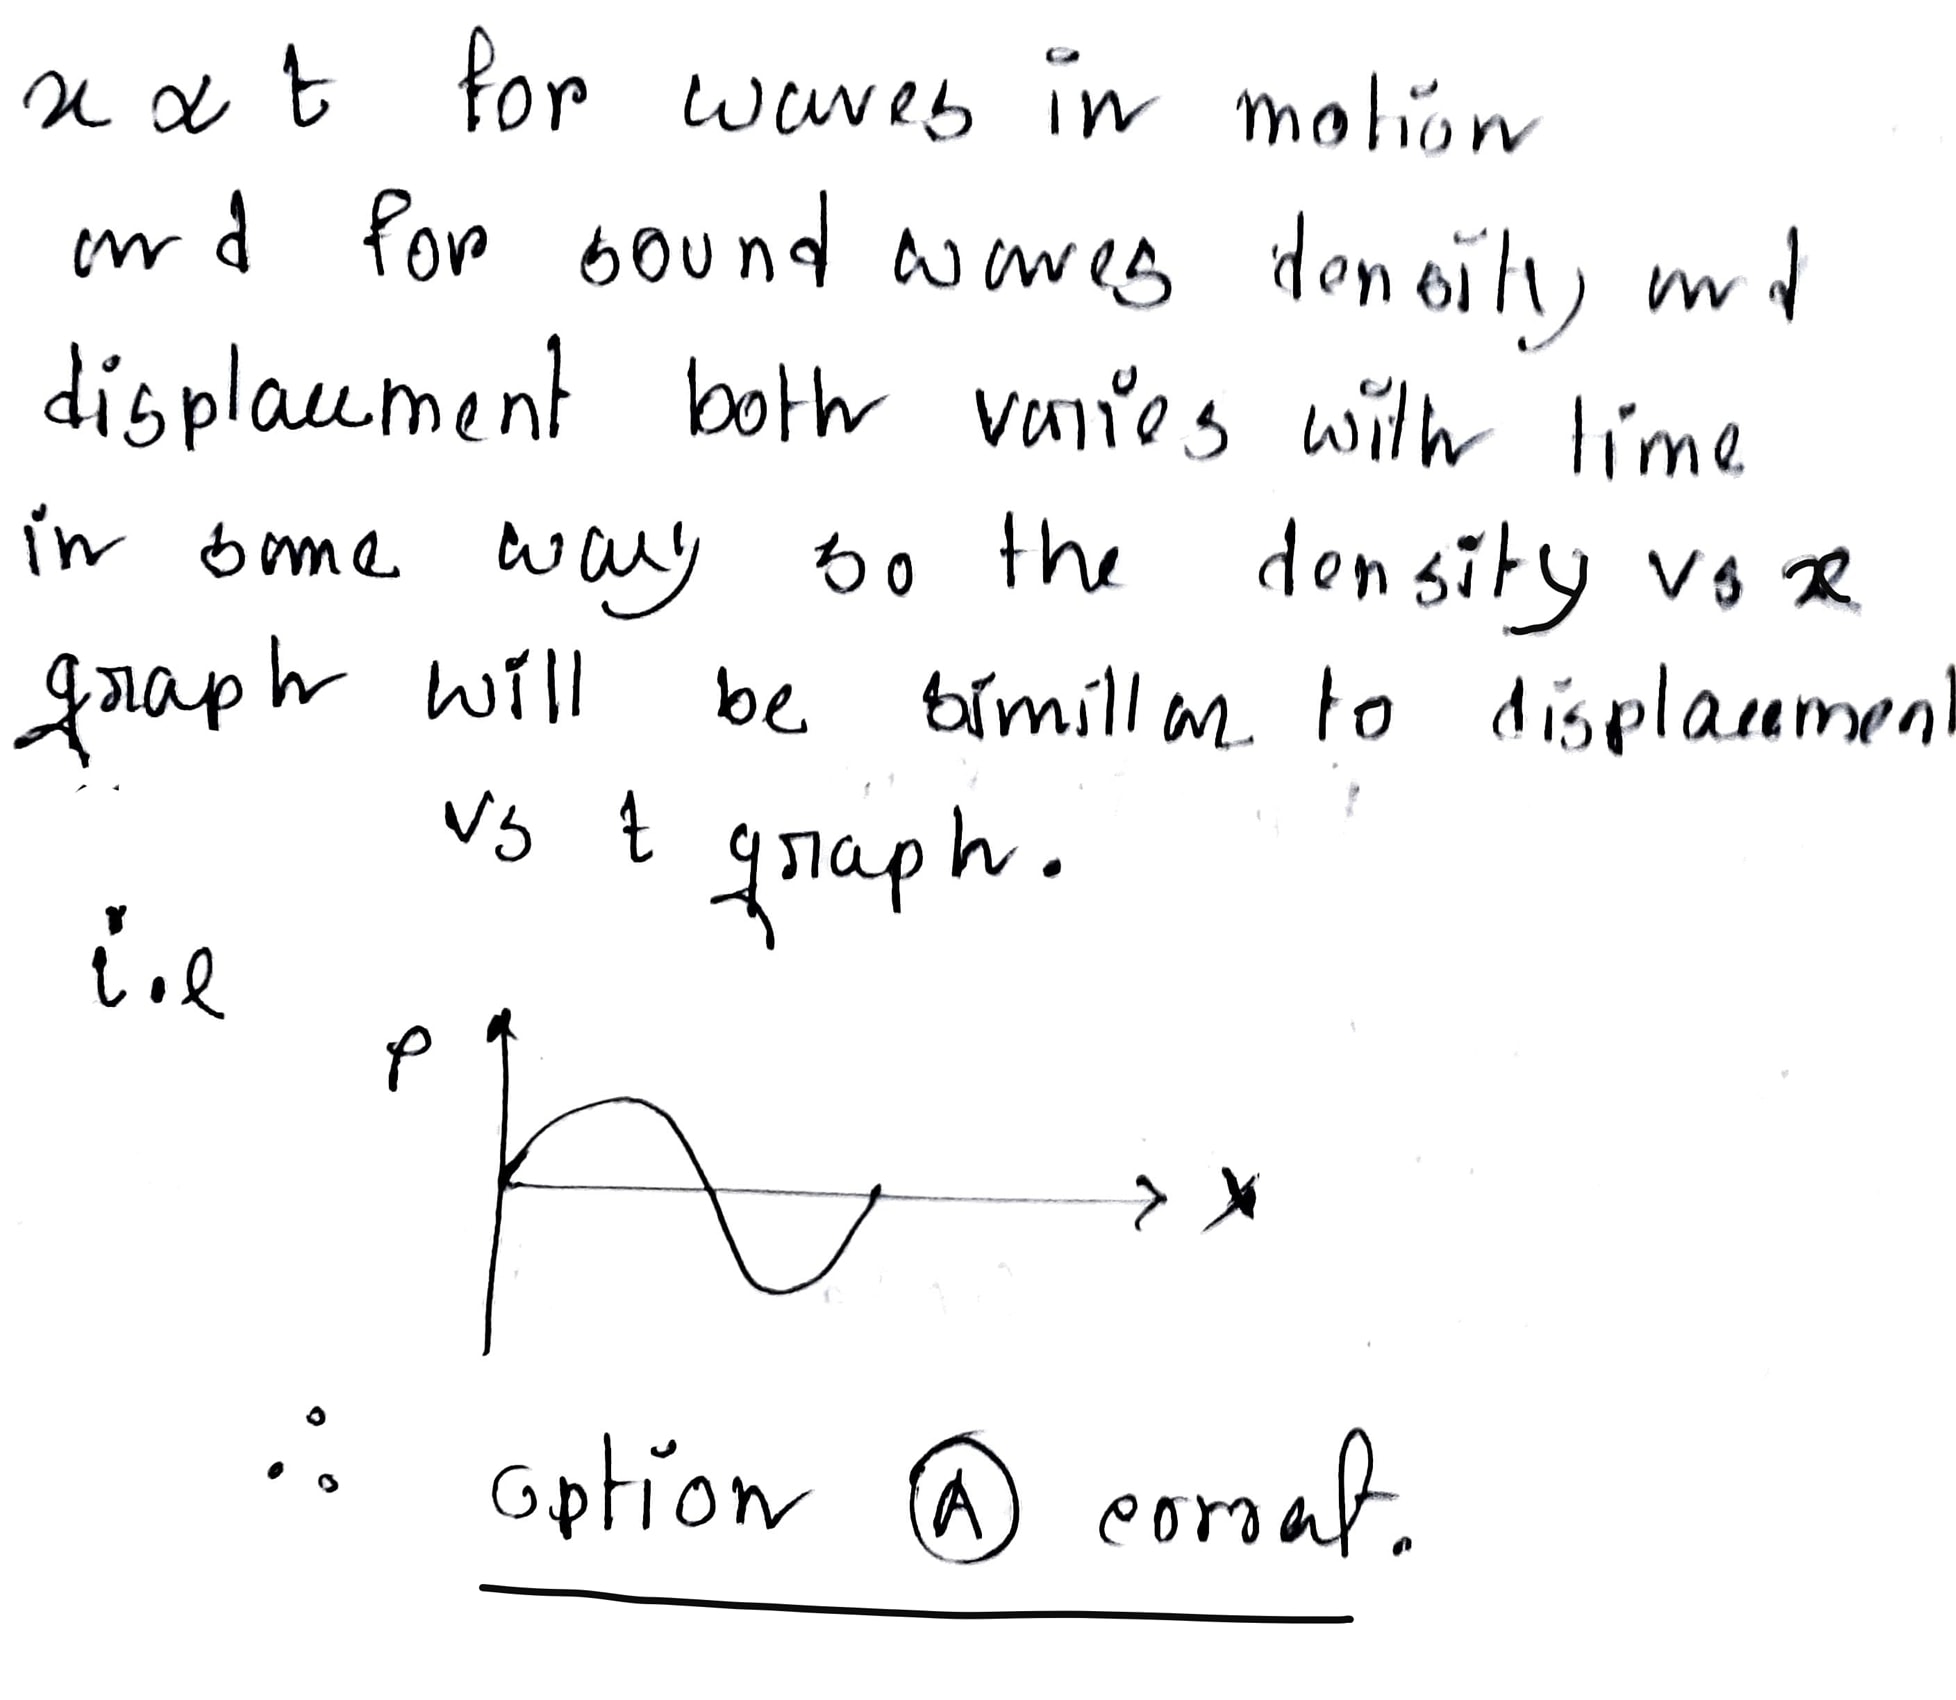 x α t for waves in motion
and for sound waves density and
displacement both varies with time
in same way so the density vs x
graph will be simillar to displacement
vs t graph.
i.e
ρ
x
∴ option Ⓐ correct.